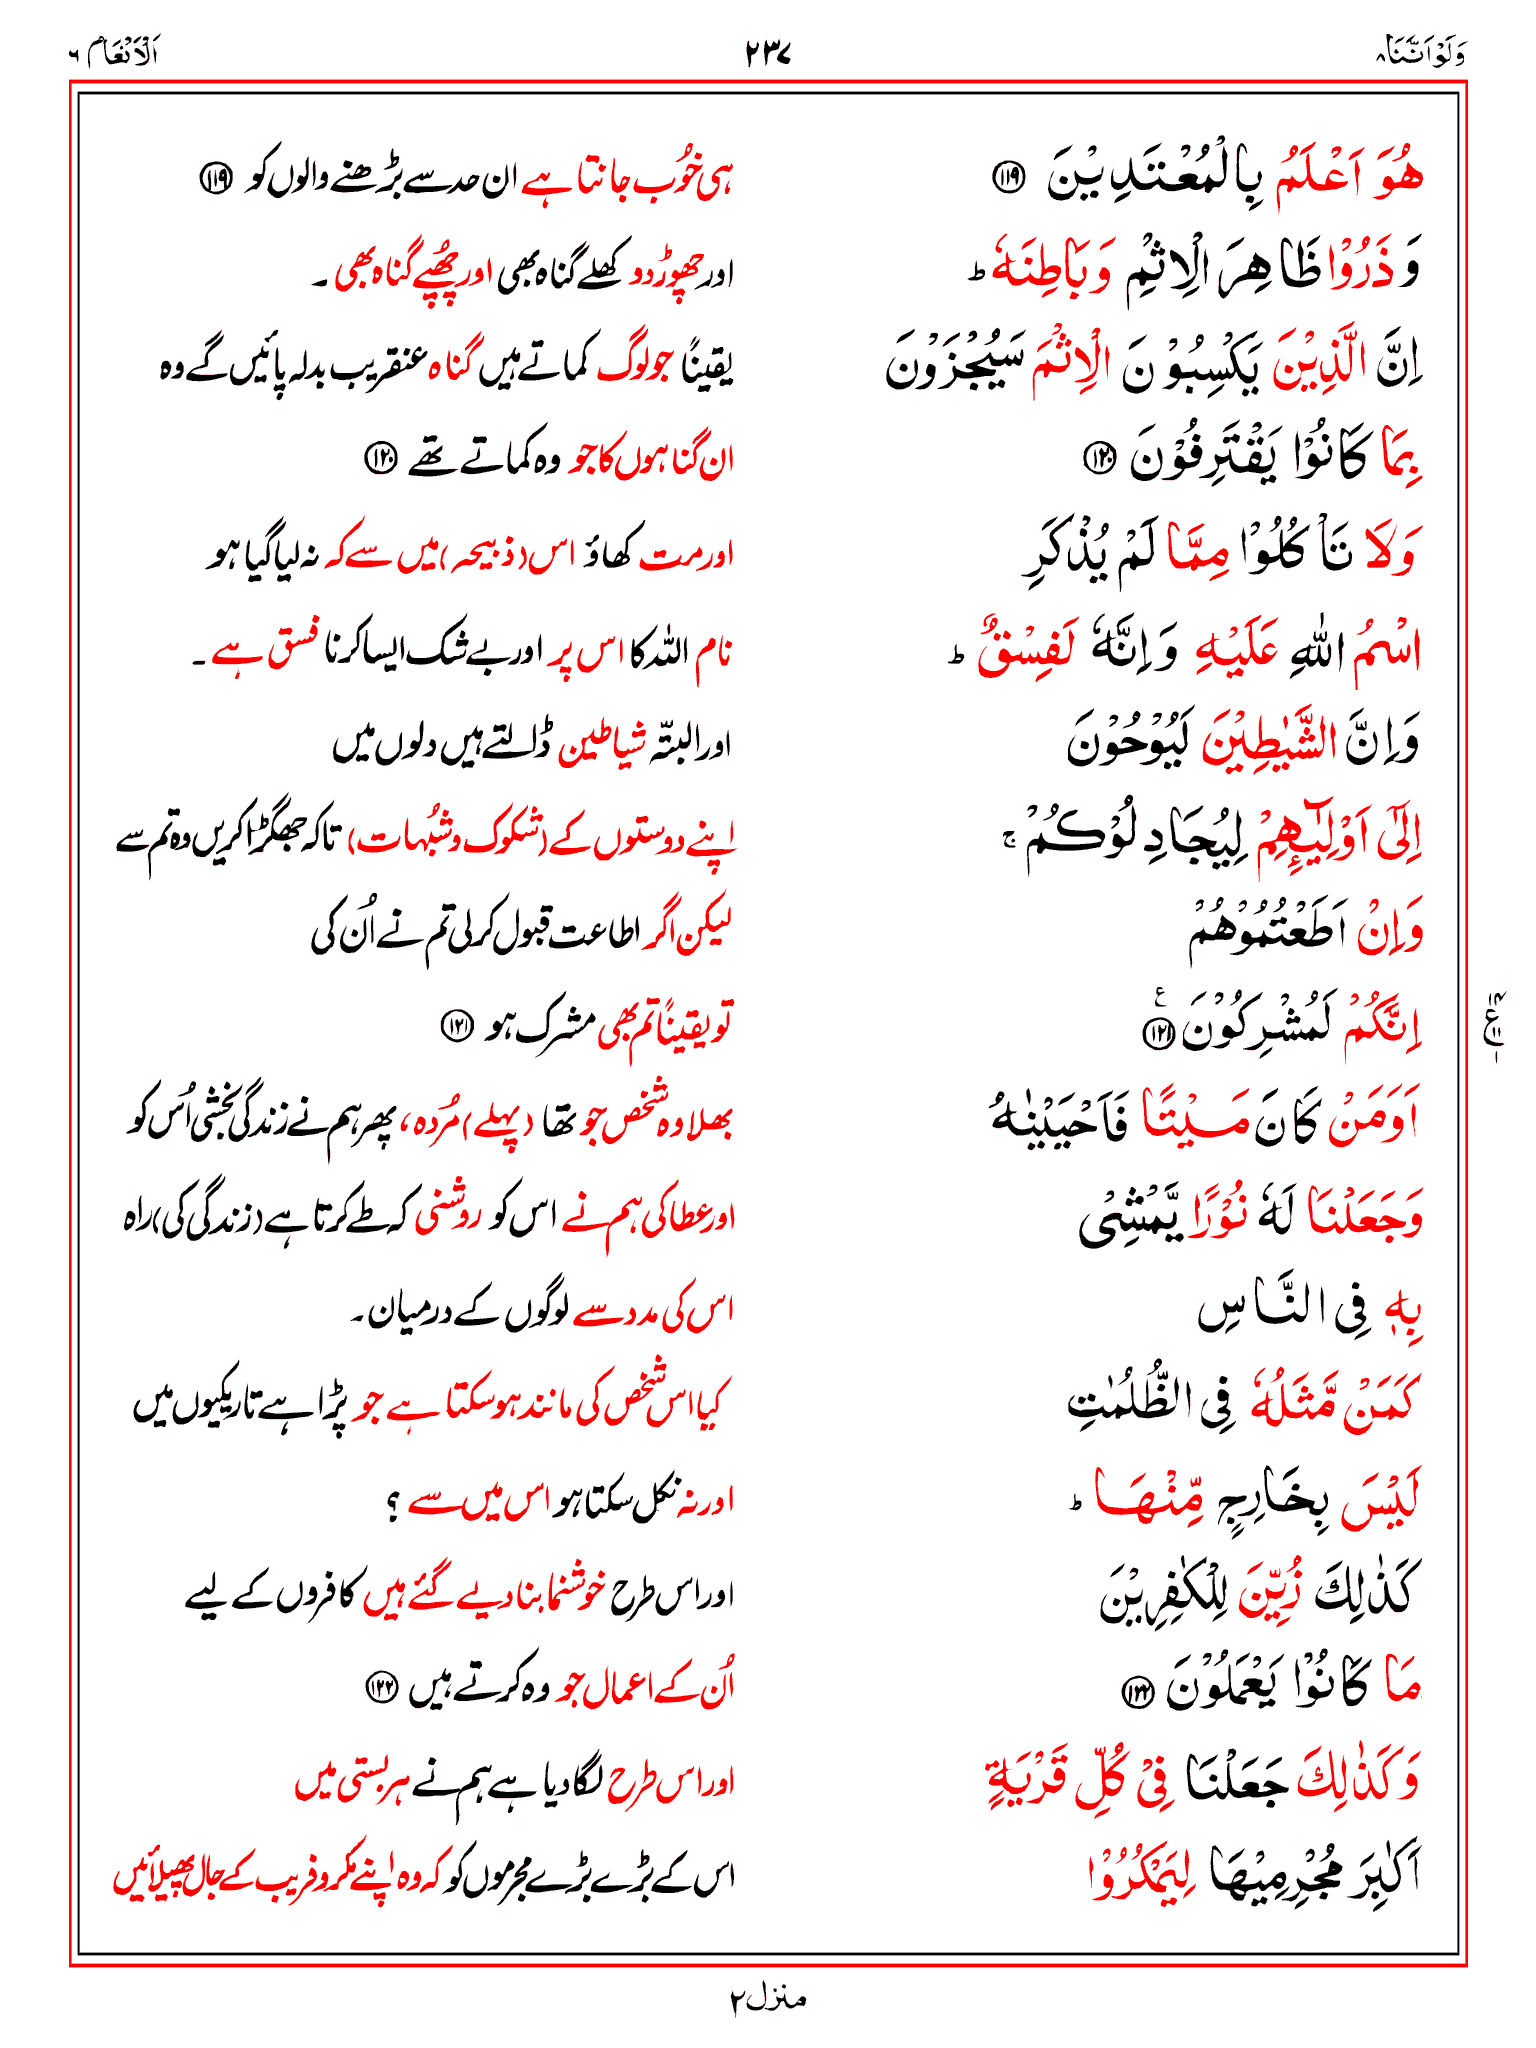 وَلَوْ اَنَّنَا ۸ ۲۳۷ اَلْاَنْعَام ۶
هُوَ اَعْلَمُ بِالْمُعْتَدِيْنَ ﴿۱۱۹﴾ ہی خُوب جانتا ہے ان حد سے بڑھنے والوں کو ﴿۱۱۹﴾
وَ ذَرُوْا ظَاهِرَ الْاِثْمِ وَ بَاطِنَهٗ ؕ اور چھوڑ دو کھلے گناہ بھی اور چُھپے گناہ بھی ۔
اِنَّ الَّذِيْنَ يَكْسِبُوْنَ الْاِثْمَ سَيُجْزَوْنَ یقینًا جو لوگ کماتے ہیں گناہ عنقریب بدلہ پائیں گے وہ
بِمَا كَانُوْا يَقْتَرِفُوْنَ ﴿۱۲۰﴾ ان گناہوں کا جو وہ کماتے تھے ﴿۱۲۰﴾
وَلَا تَاْكُلُوْا مِمَّا لَمْ يُذْكَرِ اور مت کھاؤ اس (ذبیحہ) میں سے کہ نہ لیا گیا ہو
اسْمُ اللّٰهِ عَلَيْهِ وَ اِنَّهٗ لَفِسْقٌ ؕ نام اللہ کا اس پر اور بے شک ایسا کرنا فسق ہے ۔
وَاِنَّ الشَّيٰطِيْنَ لَيُوْحُوْنَ اور البتّہ شیاطین ڈالتے ہیں دلوں میں
اِلٰٓى اَوْلِيٰٓـِٕهِمْ لِيُجَادِلُوْكُمْ ۚ اپنے دوستوں کے (شکوک و شبُہات) تاکہ جھگڑا کریں وہ تم سے
وَاِنْ اَطَعْتُمُوْهُمْ لیکن اگر اطاعت قبول کر لی تم نے اُن کی
اِنَّكُمْ لَمُشْرِكُوْنَ ﴿۱۲۱﴾ ع تو یقینًا تم بھی مشرک ہو ﴿۱۲۱﴾
۱۴ ع ۱۱ ۱
اَوَمَنْ كَانَ مَيْتًا فَاَحْيَيْنٰهُ بھلا وہ شخص جو تھا (پہلے) مُردہ، پھر ہم نے زندگی بخشی اُس کو
وَجَعَلْنَا لَهٗ نُوْرًا يَّمْشِيْ اور عطا کی ہم نے اس کو روشنی کہ طے کرتا ہے (زندگی کی) راہ
بِهٖ فِى النَّاسِ اس کی مدد سے لوگوں کے درمیان۔
كَمَنْ مَّثَلُهٗ فِى الظُّلُمٰتِ کیا اس شخص کی مانند ہو سکتا ہے جو پڑا ہے تاریکیوں میں
لَيْسَ بِخَارِجٍ مِّنْهَا ؕ اور نہ نکل سکتا ہو اس میں سے ؟
كَذٰلِكَ زُيِّنَ لِلْكٰفِرِيْنَ اور اس طرح خوشنما بنا دیے گئے ہیں کافروں کے لیے
مَا كَانُوْا يَعْمَلُوْنَ ﴿۱۲۲﴾ اُن کے اعمال جو وہ کرتے ہیں ﴿۱۲۲﴾
وَكَذٰلِكَ جَعَلْنَا فِيْ كُلِّ قَرْيَةٍ اور اس طرح لگا دیا ہے ہم نے ہر بستی میں
اَكٰبِرَ مُجْرِمِيْهَا لِيَمْكُرُوْا اس کے بڑے بڑے مجرموں کو کہ وہ اپنے مکر و فریب کے جال پھیلائیں
منزل ۲